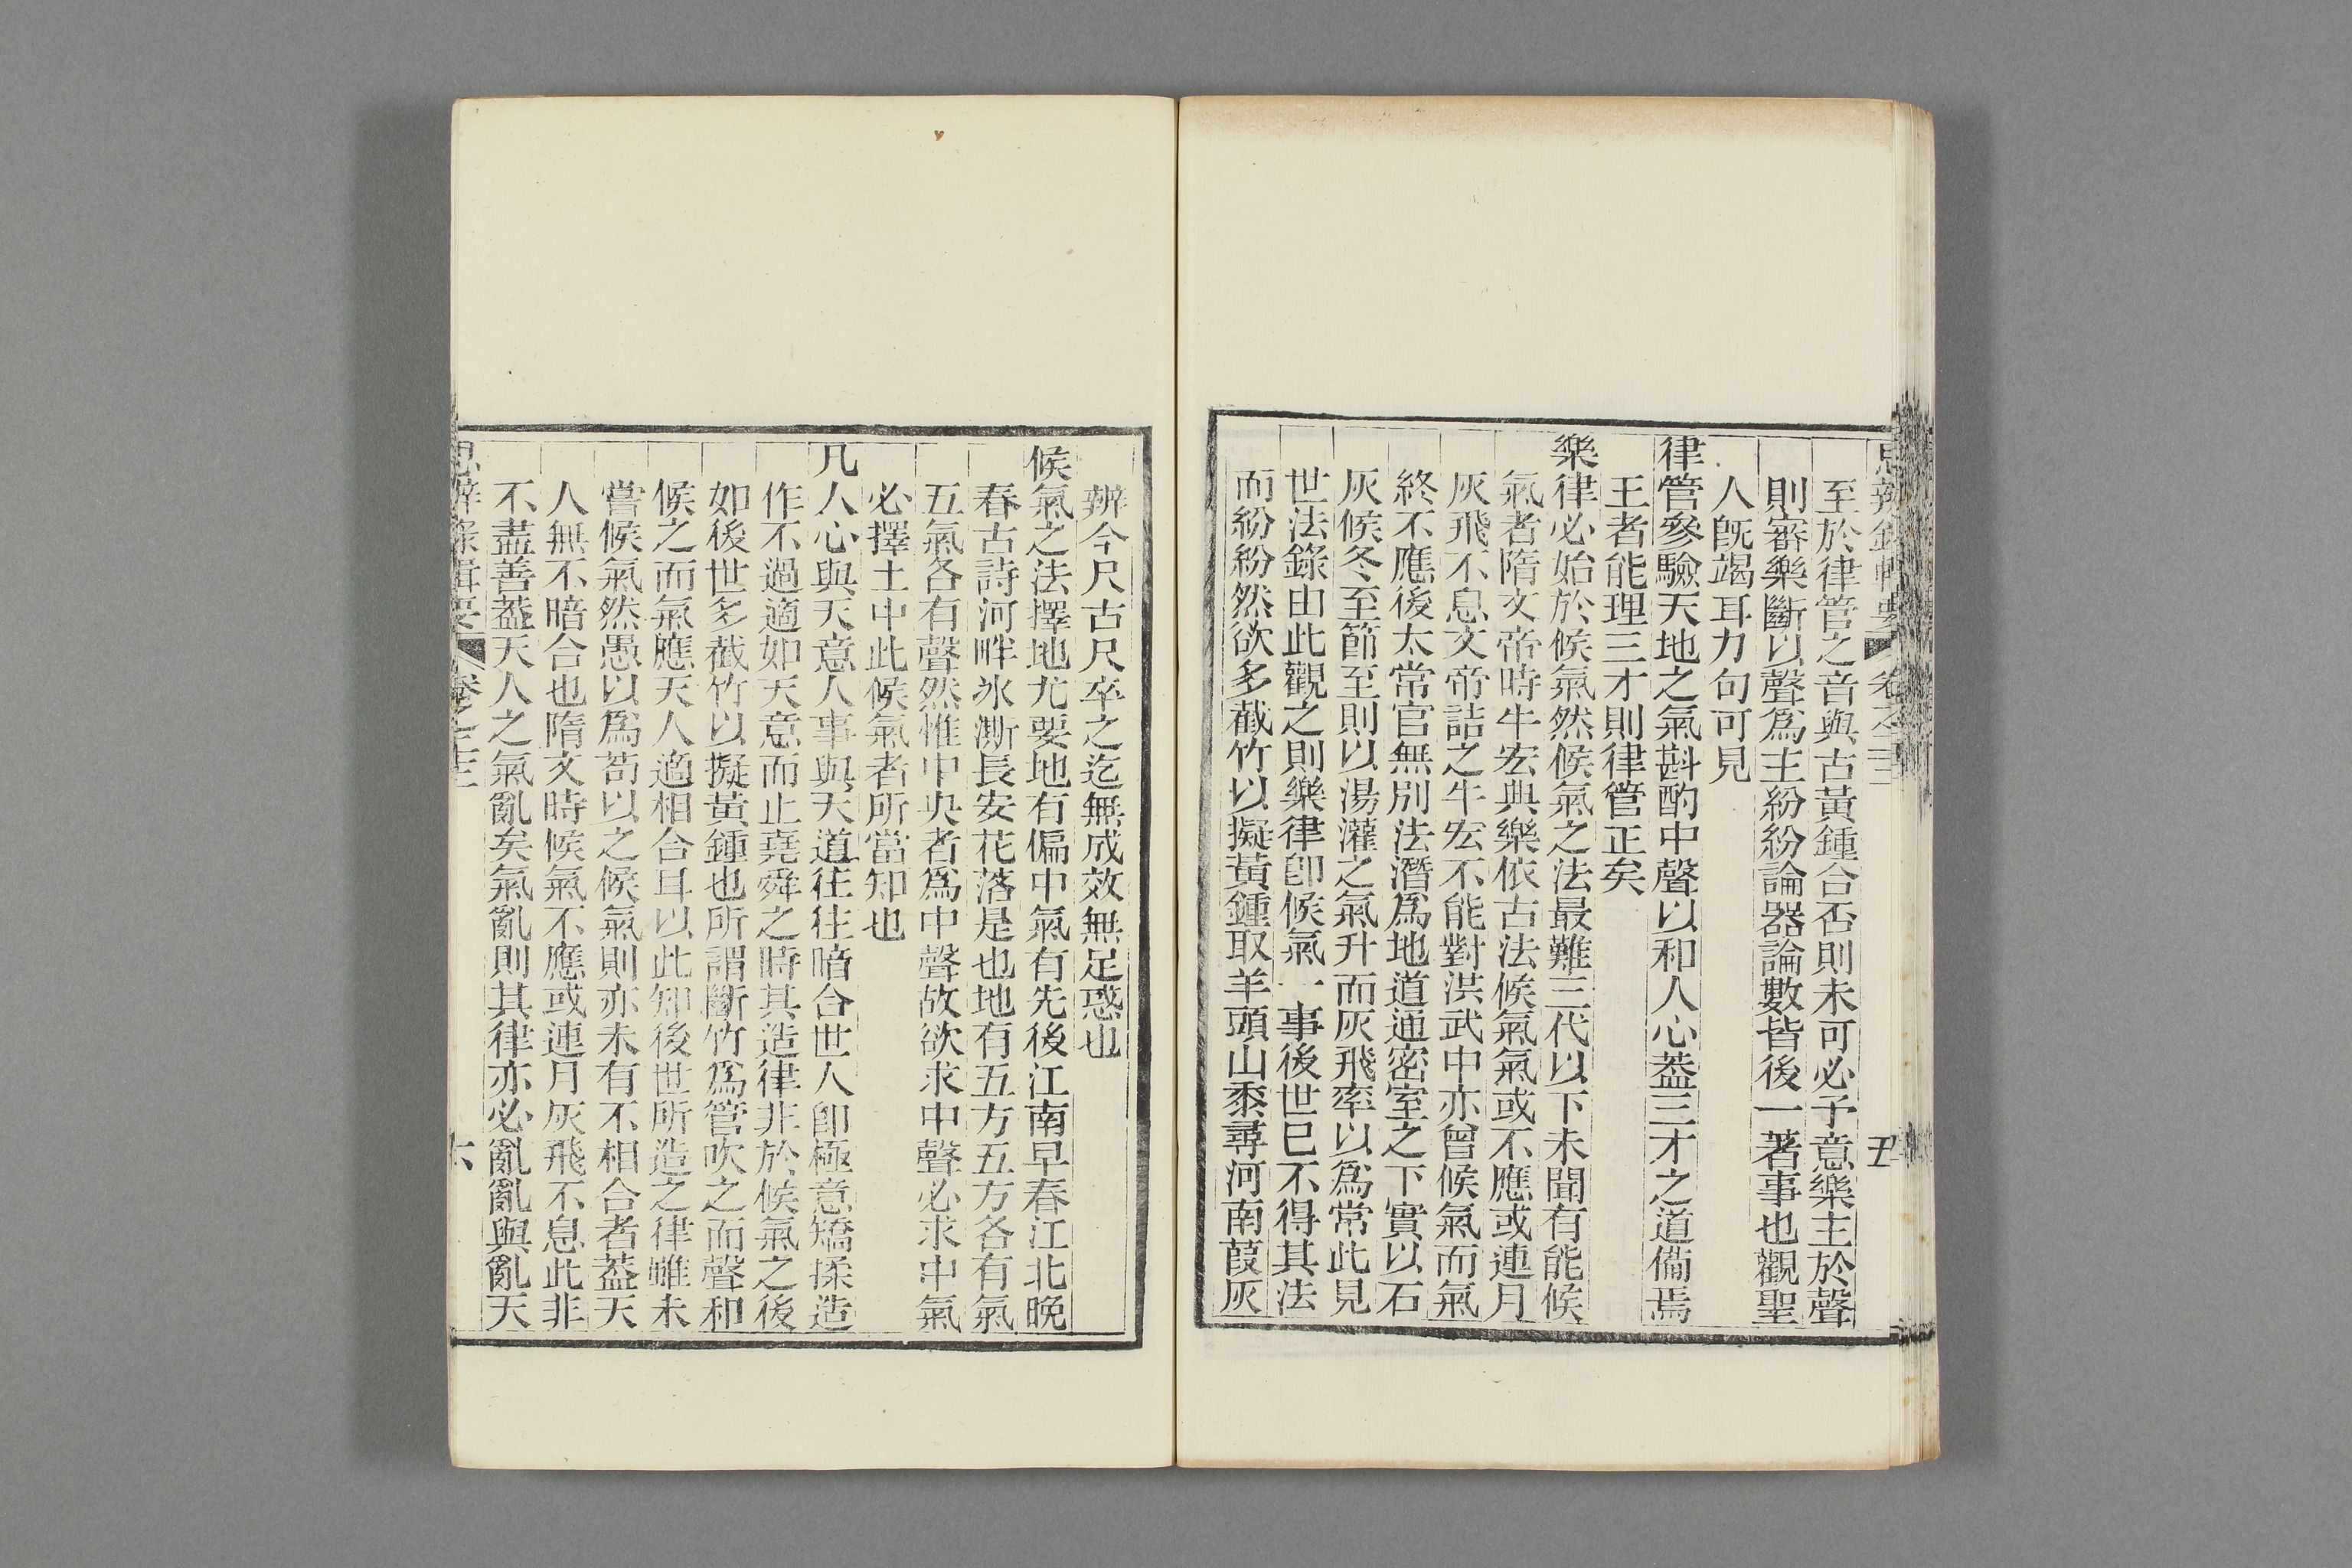 至於律管之音與古黃鍾合否則未可必予意樂主於聲
則審樂斷以聲爲主紛紛論器論數皆後一著事也觀聖
人旣竭耳力句可見
律管參驗天地之氣斟酌中聲以和人心葢三才之道備焉
王者能理三才則律管正矣
樂律必始於候氣然候氣之法最難三代以下未聞有能候
氣者隋文帝時牛宏典樂依古法候氣氣或不應或連月
灰飛不息文帝詰之牛宏不能對洪武中亦曾候氣而氣
終不應後太常官無別法潛爲地道通密室之下實以石
灰候冬至節至則以湯灌之氣升而灰飛率以爲常此見
世法錄由此觀之則樂律卽候氣一事後世已不得其法
而紛紛然欲多截竹以擬黃鍾取羊頭山黍尋河南葭灰
辨今尺古尺卒之迄無成效無足惑也
候氣之法擇地尤要地有偏中氣有先後江南早春江北晚
春古詩河畔冰澌長安花落是也地有五方五方各有氣
五氣各有聲然惟中央者爲中聲故欲求中聲必求中氣
必擇土中此候氣者所當知也
凡人心與天意人事與天道往往暗合世人卽極意矯揉造
作不過適如天意而止堯舜之時其造律非於候氣之後
如後世多截竹以擬黃鍾也所謂斷竹爲管吹之而聲和
候之而氣應天人適相合耳以此知後世所造之律雖未
嘗候氣然愚以爲苟以之候氣則亦未有不相合者葢天
人無不暗合也隋文時候氣不應或連月灰飛不息此非
不盡善葢天人之氣亂矣氣亂則其律亦必亂亂與亂天
思辨錄輯要 卷之
六